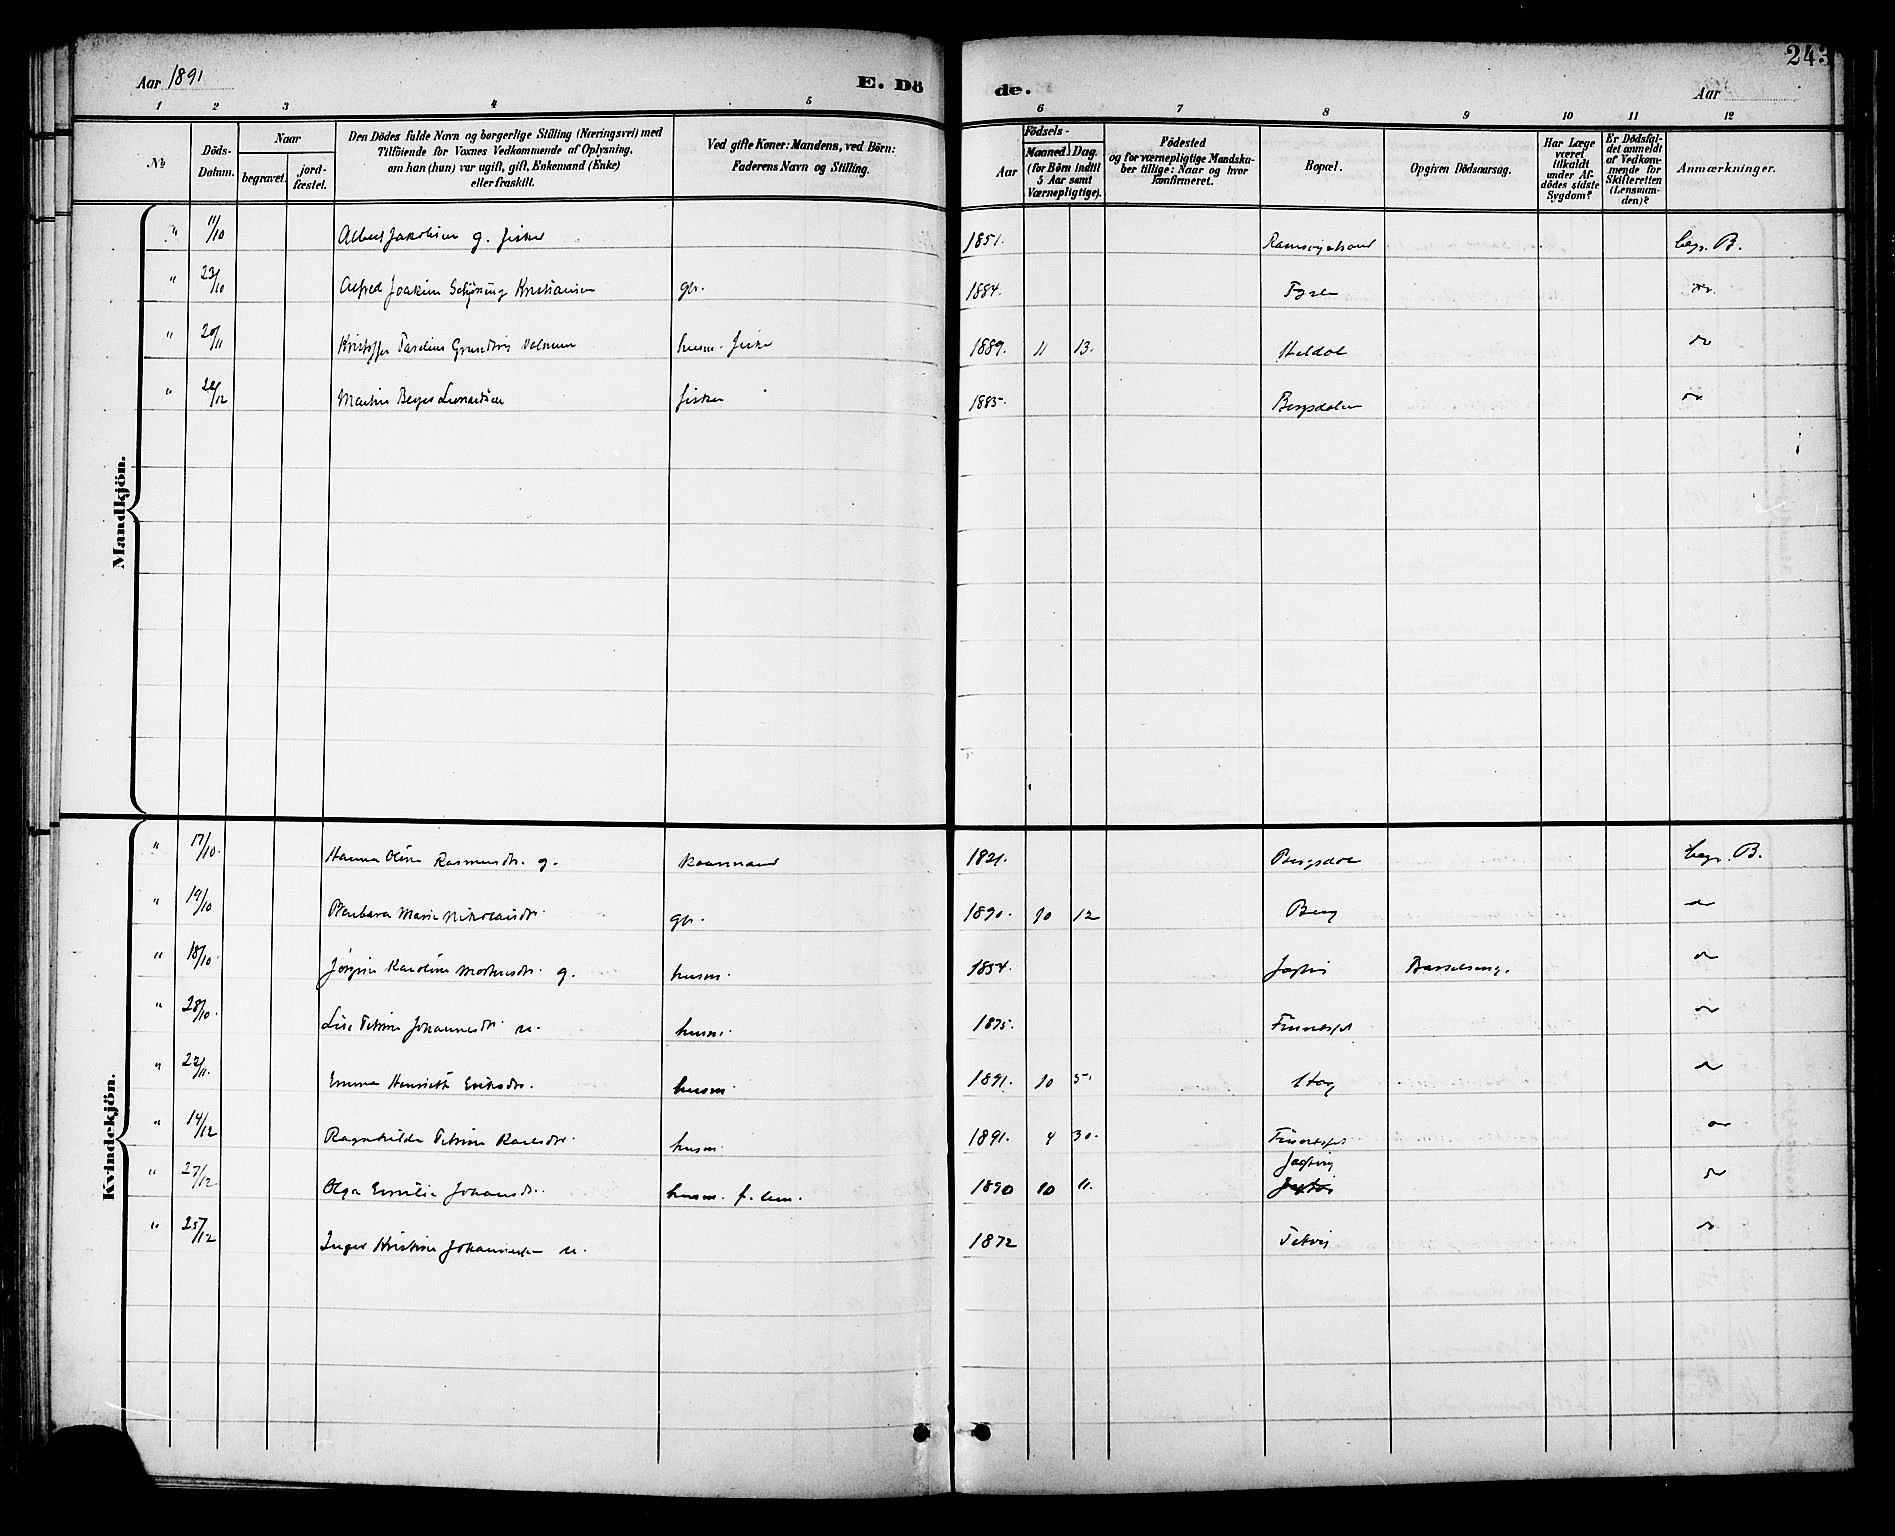 243
Aar 1891
E. Dö
de.
Aar
1 2 3 4 5 6 7 8 9 10 11 12
No
Döds-Datum.
Naar
begravet.
jord-fæstet.
Den Dödes fulde Navn og borgerlige Stilling (Næringsvei) med
Tilföiende for Voxnes Vedkommende af Oplysning,
om han (hun) var ugift, gift, Enkemand (Enke)
eller fraskilt.
Ved gifte Koner: Mandens, ved Börn:
Faderens Navn og Stilling.
Aar
Födsels-
Maaned.
Dag.
(for Börn indtil
5 Aar samt
Værnepligtige).
Födested
og for værnepligtige Mandska-
ber tillige: Naar og hvor
konfirmeret.
Bopæl.
Opgiven Dödsaarsag.
Har Læge
været
tilkaldt
under Af-
dödes sidste
Sygdom?
Er Dödsfal-
det anmeldt
af Vedkom-
mende for
Skifteretten
(Lensman-
den)?
Anmærkninger.
Mandkjön.
" 11/10 Albert Jakobsen g. fisker 1851. begr. B.
" 23/10 Alfred Joakim Schjøning Kristiansen gbr. 1884. do
" 20/11 Kristoffer Grundtvig husm. fisker 1889. 11 13. do
" /12 Martin Beyer Leonardsen fisker 1885. Bergsdalen do
Kvindekjön.
" 17/10. Hanna Oline Rasmusdtr. g. kaarmand 1821. Bergsdal begr. B.
" 19/10 Barbara Marie Nikolaisdtr. gbr. 1890. 10 12 Berg do
" 18/10. Jørgine Karoline g. husm. 1854. Jagtvig Barselseng. do
" 28/10. Lise Petrine Johannesdtr. u. husm. 1875. Finnesset do
" 22/11. Emma Henriette Eriksdtr. husm. 1891. 10 5. do
" 14/12 Ragnhilda Petrine Karlsdtr. husm. 1891. 4 30. Finnesset do
" 27/12 Olga Emilie Johansdtr. husm. f. lem. 1890 10 11. Jagtvig do
" 25/12 Inger Kristine u. 1872 do